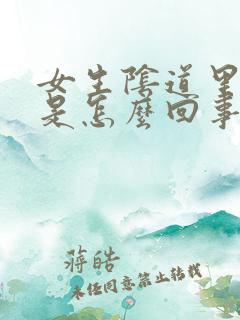 女生陰道里
是怎麼回事
蔣皓
未任同意禁止转载